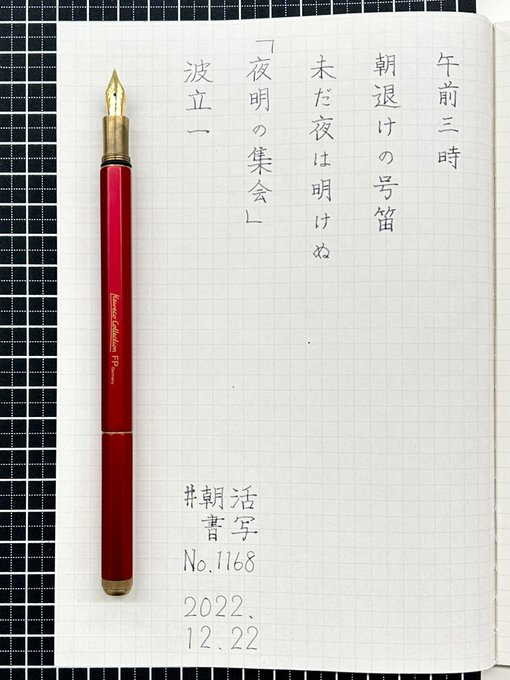 午前三時
朝退けの号笛
未だ夜は明けぬ
「夜明の集会」
波立一
#朝活
書写
No.1168
2022.
12.22
Kaweco Collection FP Germany